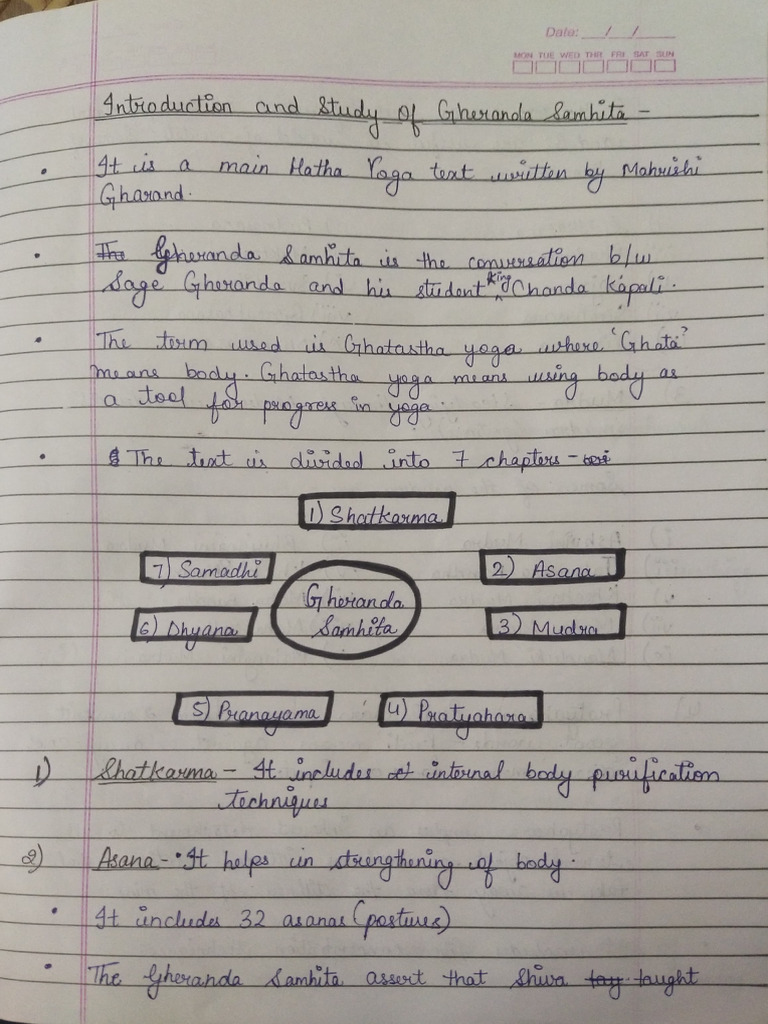 Date: __/__/__
MON TUE WED THR FRI SAT SUN
Introduction and Study of Gheranda Samhita -
• It is a main Hatha Yoga text written by Mahrishi
Gharand.
• The Gheranda Samhita is the conversation b/w
Sage Gheranda and his student king Chanda Kapali.
• The term used is Ghatastha yoga where 'Ghata'
means body. Ghatastha yoga means using body as
a tool for progress in yoga.
• The text is divided into 7 chapters -
1) Shatkarma
7) Samadhi
2) Asana
Gheranda
Samhita
6) Dhyana
3) Mudra
5) Pranayama
4) Pratyahara
1) Shatkarma - It includes internal body purification
techniques
2) Asana - • It helps in strengthening of body.
• It includes 32 asanas (postures)
• The Gheranda Samhita assert that Shiva tay taught